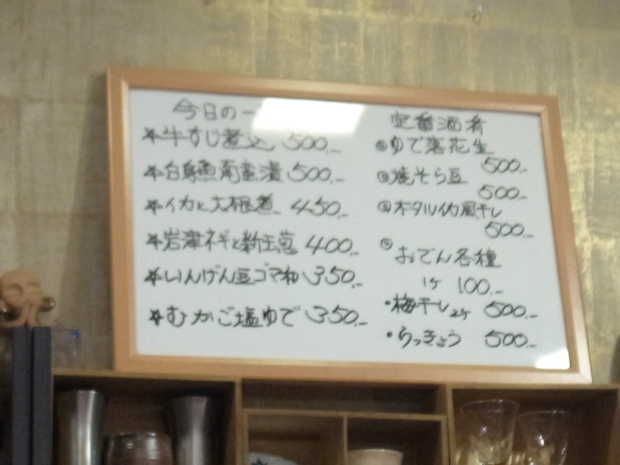 今日の一
*牛すじ煮込 500.-
*白身魚南蛮漬 500.-
*イカと大根煮 450.-
*岩津ネギと新玉葱 400.-
*いんげん豆ゴマ和 350.-
*むかご塩ゆで 350.-
定番酒肴
ゆで落花生
500.-
焼そら豆
500.-
ホタルイカ風干し
500.-
おでん各種
1ケ 100.-
・梅干し2ケ 500.-
・らっきょう 500.-